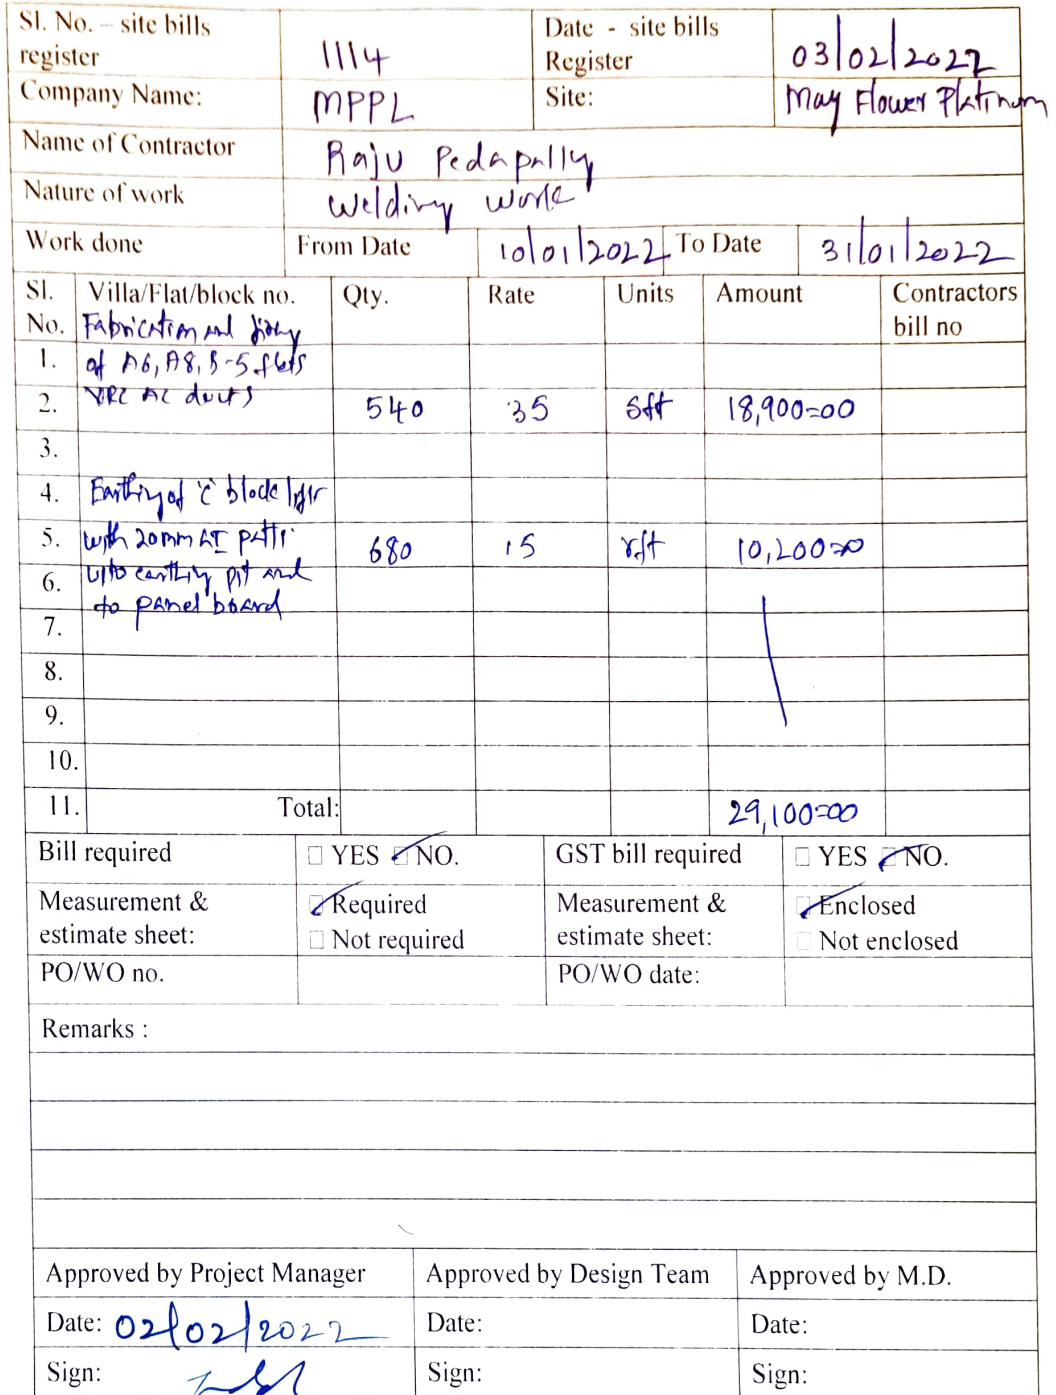 Sl. No. – site bills register 1114 Date - site bills Register 03/02/2022
Company Name: MPPL Site: May Flower Platinum
Name of Contractor Raju Pedapally
Nature of work Welding work
Work done From Date 10/01/2022 To Date 31/01/2022
Sl. No. Villa/Flat/block no. Qty. Rate Units Amount Contractors bill no
Fabrication and fixing
1. of A6, A8, B-5 flats
2. AC ducts 540 35 sft 18,900=00
3.
4. Earthing of 'C' block
5. with 20mm patti 680 15 rft 10,200=00
6. upto earthing pit and
to panel board
7.
8.
9.
10.
11. Total: 29,100=00
Bill required ☐ YES ☑ NO. GST bill required ☐ YES ☑ NO.
Measurement & estimate sheet: ☑ Required ☐ Not required Measurement & estimate sheet: ☑ Enclosed ☐ Not enclosed
PO/WO no. PO/WO date:
Remarks :
Approved by Project Manager Approved by Design Team Approved by M.D.
Date: 02/02/2022 Date: Date:
Sign: Sign: Sign: